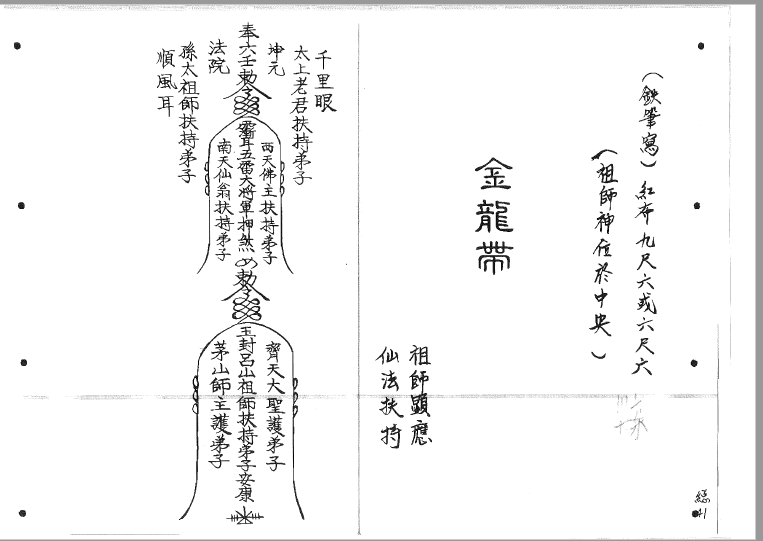 (鉄筆寫)紅布九尺六或六尺六
(祖師神位於中央)
金龍帶
祖師顕應
仙法扶持
總41
千里眼
太上老君扶持弟子
坤元
奉六壬勅令
法院
孫太祖師扶持弟子
順風耳
西天佛主扶持弟子
耳五雷大將軍押煞
南天仙翁扶持弟子
勅令
齊天大聖護弟子
玉封呂山祖師扶持弟子安康
茅山師主護弟子